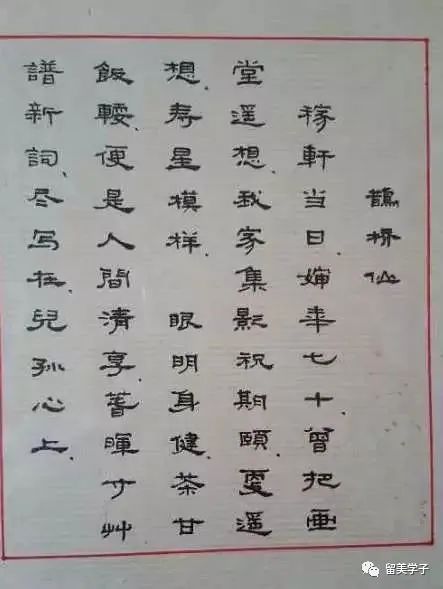 鵲桥仙
稼軒当日、婶年七十、曾把画
堂遥想、我家集影祝期頤、更遥
想、寿星模样、 眼明身健、茶甘
飯輭、便是人間清享、萱暉寸艸
譜新詞、尽写在、兒孙心上、
留美学子